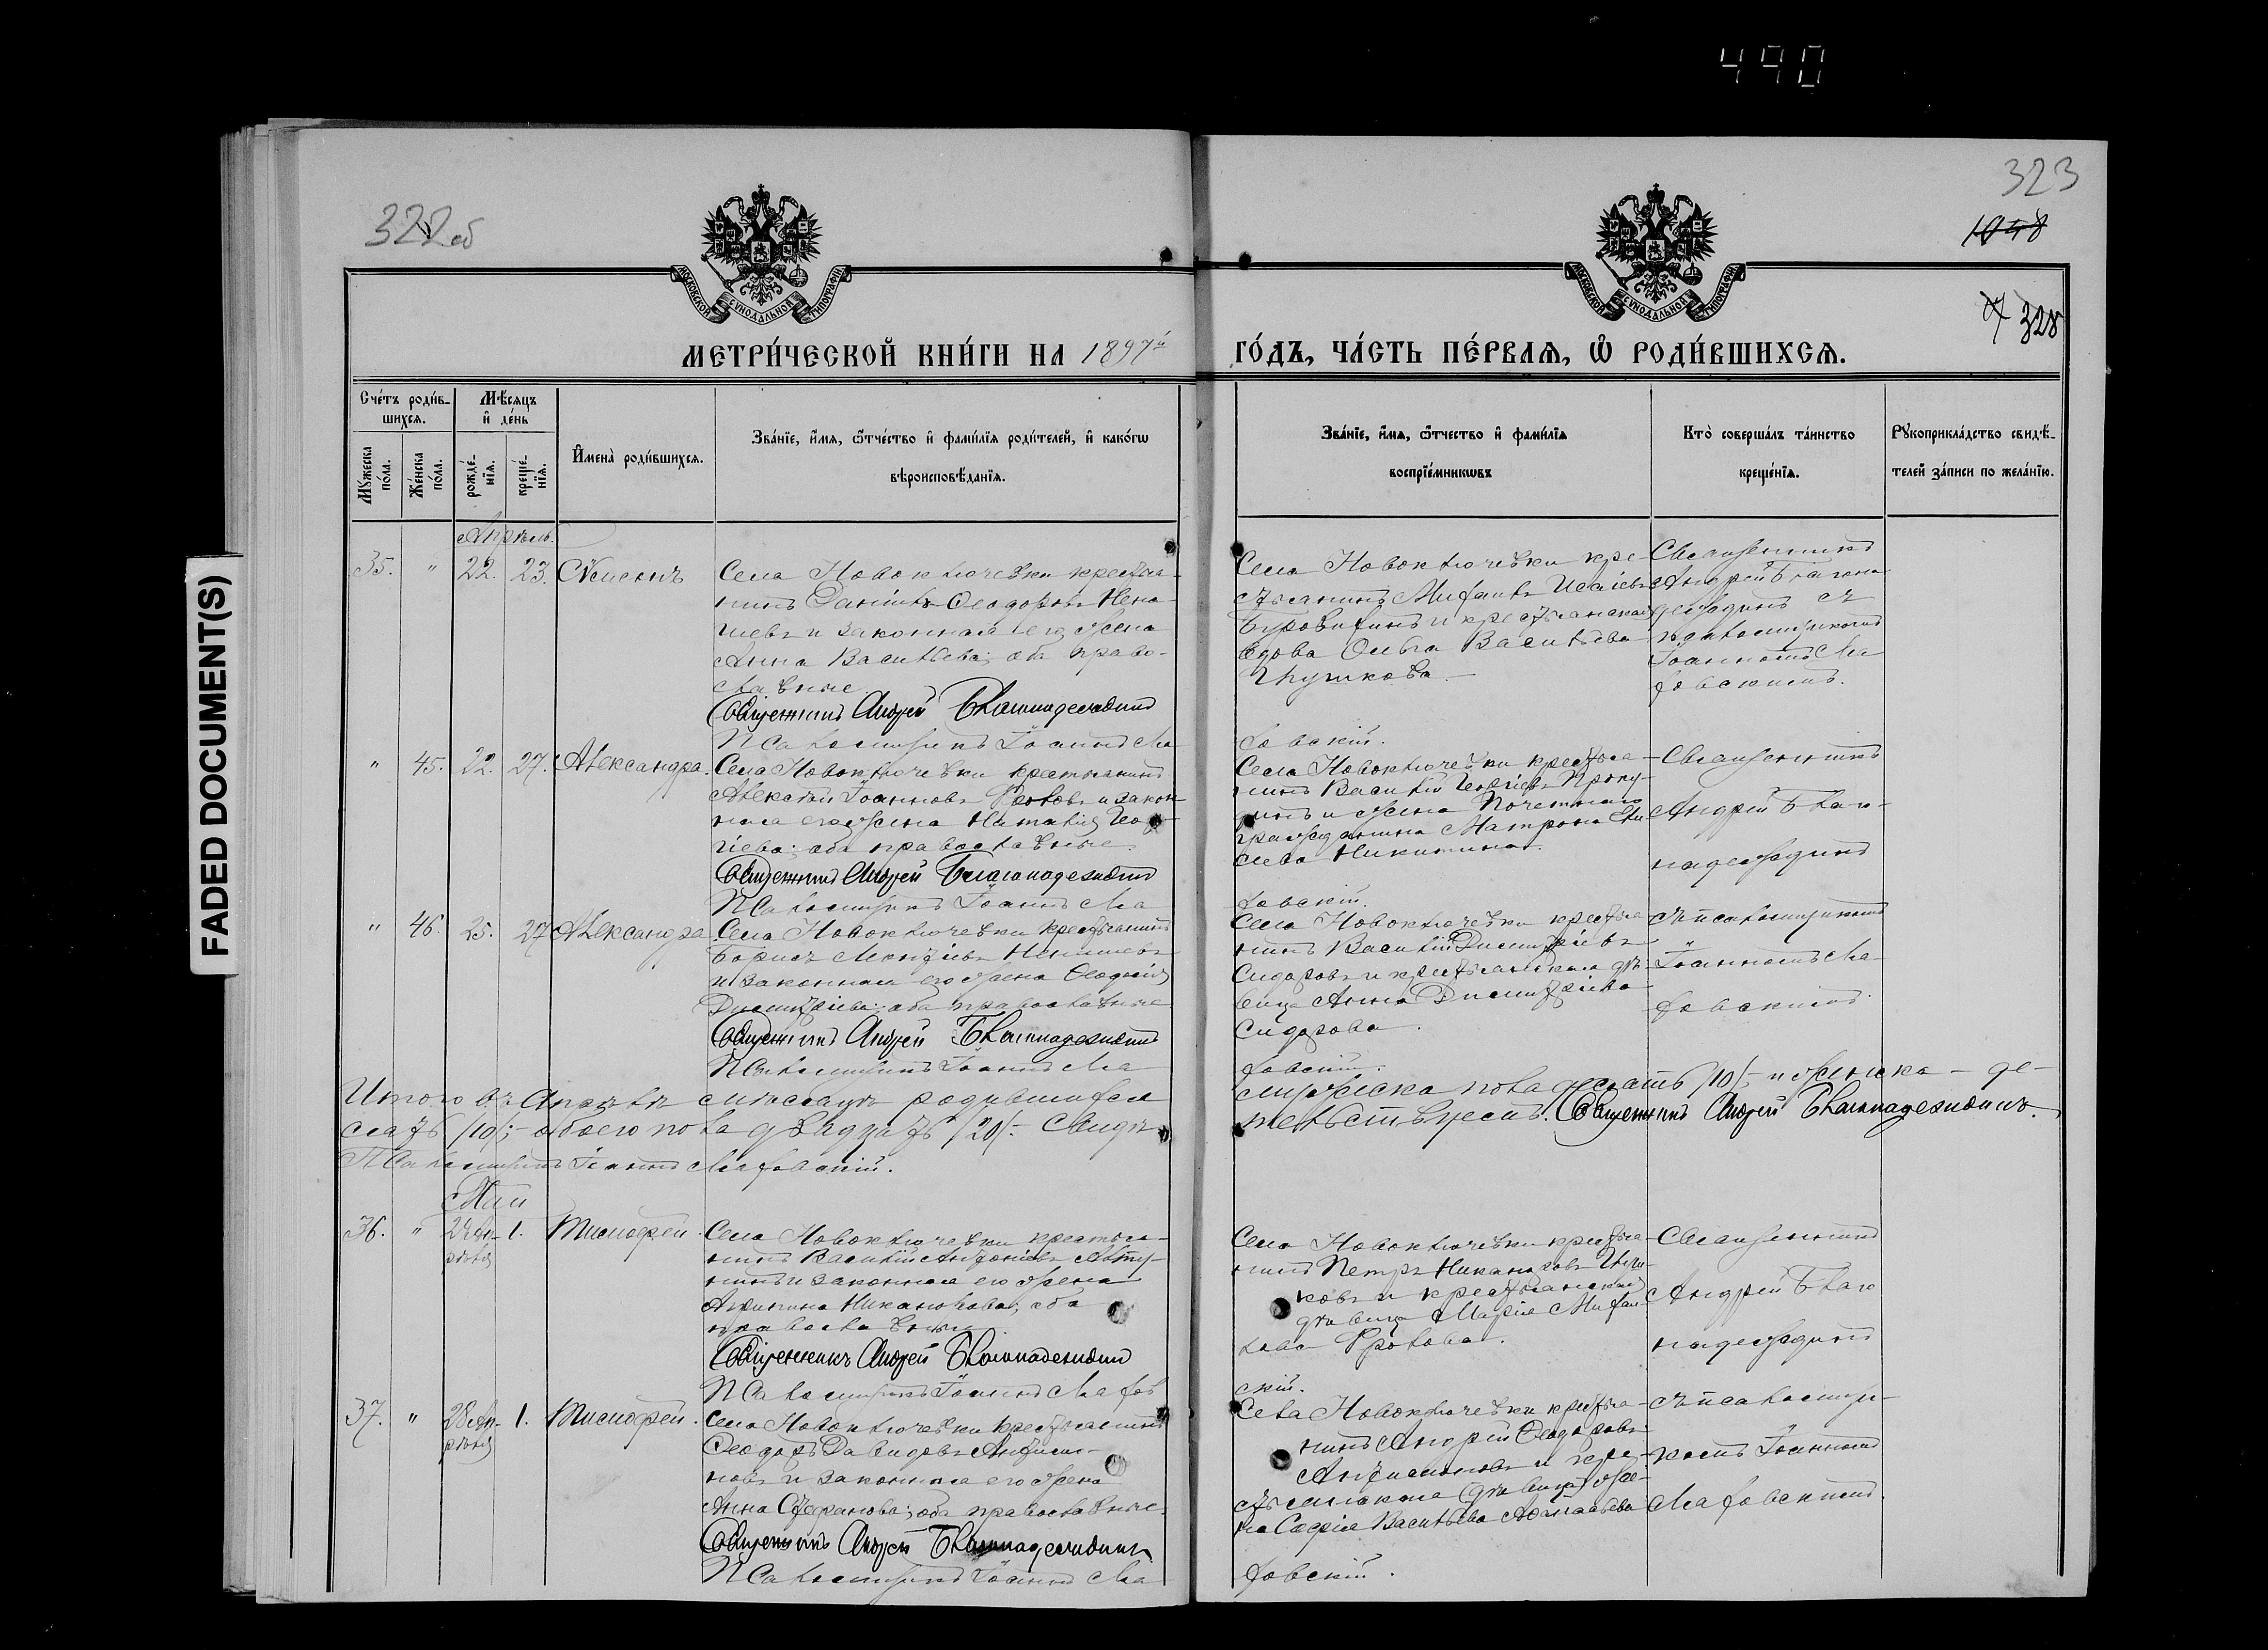 490
FADED DOCUMENT(S)
322 об
323
1048
328
МОСКОВСКОЙ СУНОДАЛЬНОЙ ТИПОГРАФІИ
МОСКОВСКОЙ СУНОДАЛЬНОЙ ТИПОГРАФІИ
МЕТРИ́ЧЕСКОЙ КНИ́ГИ НА 1897й
ГО́ДЪ, ЧА́СТЬ ПЕ́РВАѦ, Ѽ РОДИ́ВШИХСѦ.
Сче́тъ роди́в-
шихсѧ.
Мѣ́сѧцъ
и҆ де́нь
Мꙋ́жеска
по́ла.
Же́нска
по́ла.
рожде́-
нїѧ.
креще́-
нїѧ.
И҆мена̀ роди́вшихсѧ.
Зва́нїе, и҆́мѧ, ѻ҆́тчество и҆ фами́лїѧ роди́телей, и҆ како́гѡ
вѣроисповѣ́данїѧ.
Зва́нїе, и҆́мѧ, ѻ҆́тчество и҆ фами́лїѧ
воспрїе́мникѡвъ
Кто̀ соверша́лъ та́инство
креще́нїѧ.
Рꙋкоприкла́дство свидѣ́-
телей за́писи по жела́нїю.
Апрѣль.
35. " 22. 23. Сѵмеонъ
Села Новоключевки крестья-
нинъ Даніилъ Ѳеодоровъ
и законная его жена
Анна Васильева; оба право-
славные.
Священникъ Андрей Благонадеждинъ
Псаломщикъ Іоаннъ Ма
Села Новоключевки кре-
стьянинъ
и крестьянская
вдова Ольга Васильева
Глушкова.
ловскій.
Священникъ
Андрей Благона
деждинъ съ
псаломщикомъ
Іоанномъ Ма
ловскимъ.
" 45. 22. 27. Александра.
Села Новоключевки крестьянинъ
Алексѣй Іоанновъ и закон-
ная его жена Наталія Геор
гіева; оба православные.
Священникъ Андрей Благонадеждинъ
Псаломщикъ Іоаннъ Ма
Села Новоключевки крестья-
нинъ Василій
и жена Почетнаго
гражданина Матрона
Никитина.
ловскій.
Священникъ
Андрей Благо-
надеждинъ
" 46. 25. 27 Александра.
Села Новоключевки крестьянинъ
Борисъ
и законная его жена
Димитріева; оба православные
Священникъ Андрей Благонадеждинъ
Псаломщикъ Іоаннъ Ма
Села Новоключевки крестья
нинъ Василій Димитріевъ
Сидоровъ и крестьянская дѣ
вица Анна Димитріева
Сидорова.
ловскій.
съ псаломщикомъ
Іоанномъ Ма-
ловскимъ.
Итого въ Апрѣлѣ мѣсяцѣ родившихся
мужеска пола десять /10/; и женска - де-
сять /10/; - обоего пола двадцать /20/. Свидѣ
тельствуемъ: Священникъ Андрей Благонадеждинъ.
Псаломщикъ Іоаннъ Маловскій.
Май
36. " 1. Тимоѳей.
Села Новоключевки крестья-
нинъ Василій
и законная его жена
оба
православные.
Священникъ Андрей Благонадеждинъ
Псаломщикъ Іоаннъ Малов
Села Новоключевки крестья-
нинъ Петръ Никаноровъ
ковъ и крестьянская
дѣвица Марія Михаи-
лова Фролова.
скій.
Священникъ
Андрей Благо
надеждинъ
37. " 28 Ап-
рѣля 1. Тимоѳей.
Села Новоключевки крестьянинъ
Ѳеодоръ Давидовъ
и законная его жена
Анна Стефанова; оба православные.
Священникъ Андрей Благонадеждинъ
Псаломщикъ Іоаннъ Ма
Села Новоключевки крестья-
нинъ Андрей Ѳеодоровъ
и кре-
стьянская
Софія Васильева
ловскій.
съ псаломщи-
комъ Іоанномъ
Маловскимъ.